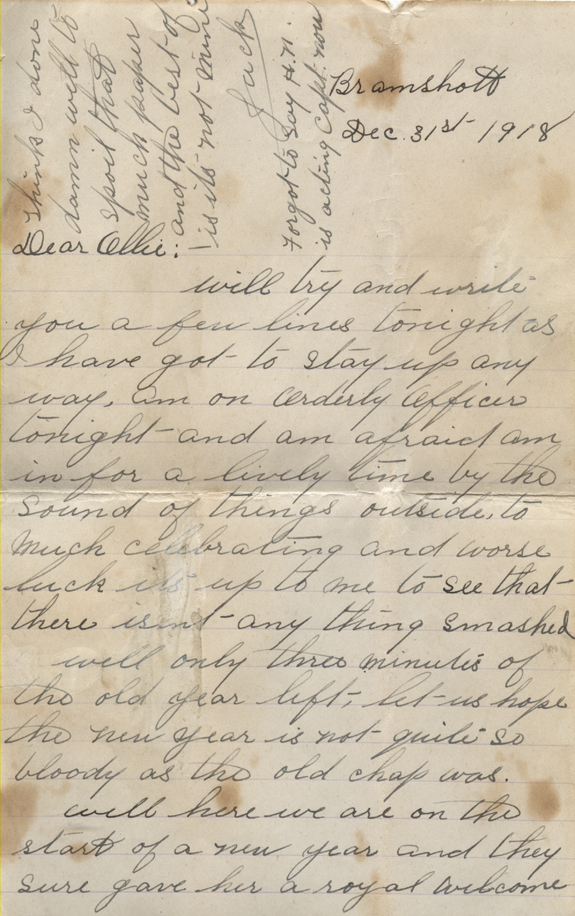 Think I done
damn well to
spoil that
much paper
and the best of
is its not mine
Jack
Forgot to say H.N.
is acting Capt. now
Bramshott
Dec. 31st 1918
Dear Ollie:
will try and write
you a few lines tonight as
I have got to stay up any
way, am on Orderly Officer
tonight and am afraid am
in for a lively time by the
sound of things outside, to
much celebrating and worse
luck its up to me to see that
there isent any thing smashed
well only three minutes of
the old year left, let us hope
the new year is not quite so
bloody as the old chap was.
well here we are on the
start of a new year and they
sure gave her a royal welcome